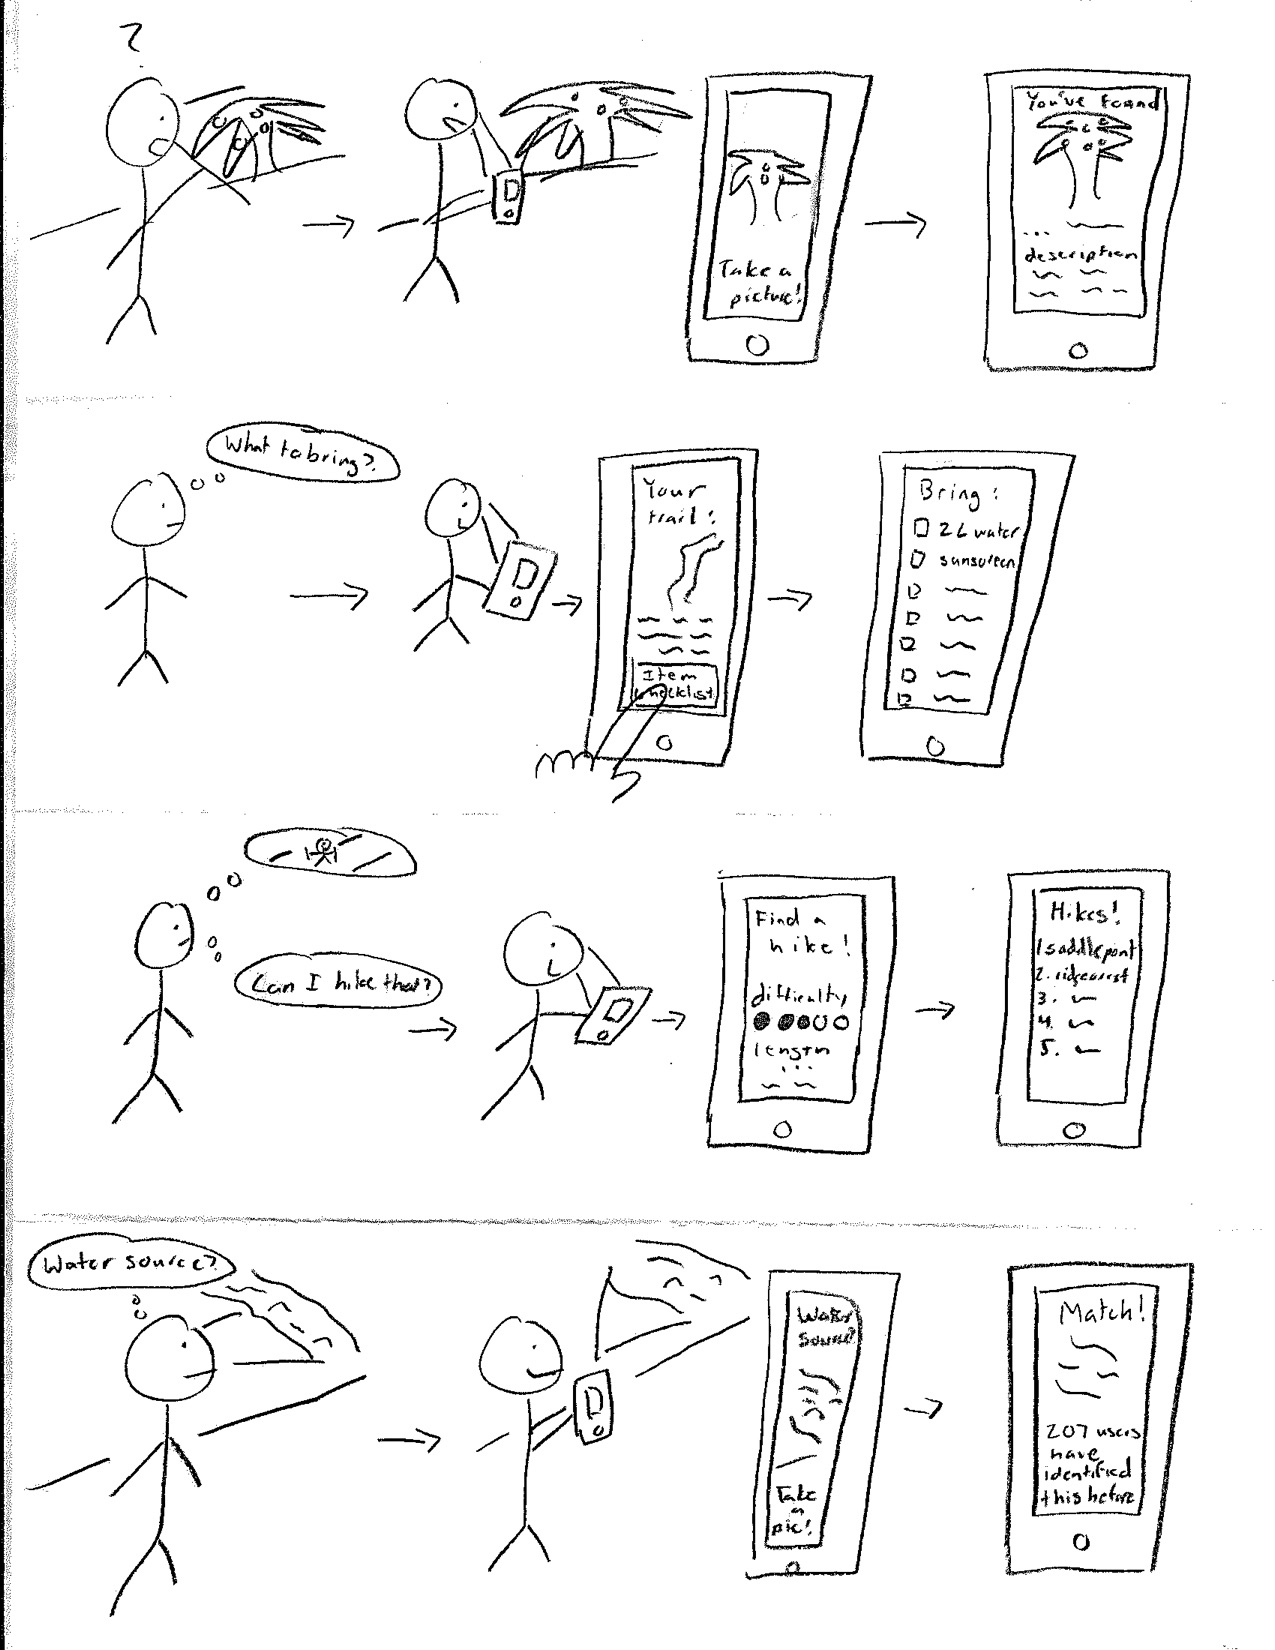 ?
Take a
picture!
You've found
...
description
What to bring?
Your
trail:
Item
checklist
Bring:
2L water
sunscreen
Can I hike that?
Find a
hike!
difficulty
length
...
Hikes!
1 saddlepoint
2. ridgecrest
3.
4.
5.
Water source?
Water
Source?
Take
a
pic!
Match!
207 users
have
identified
this before